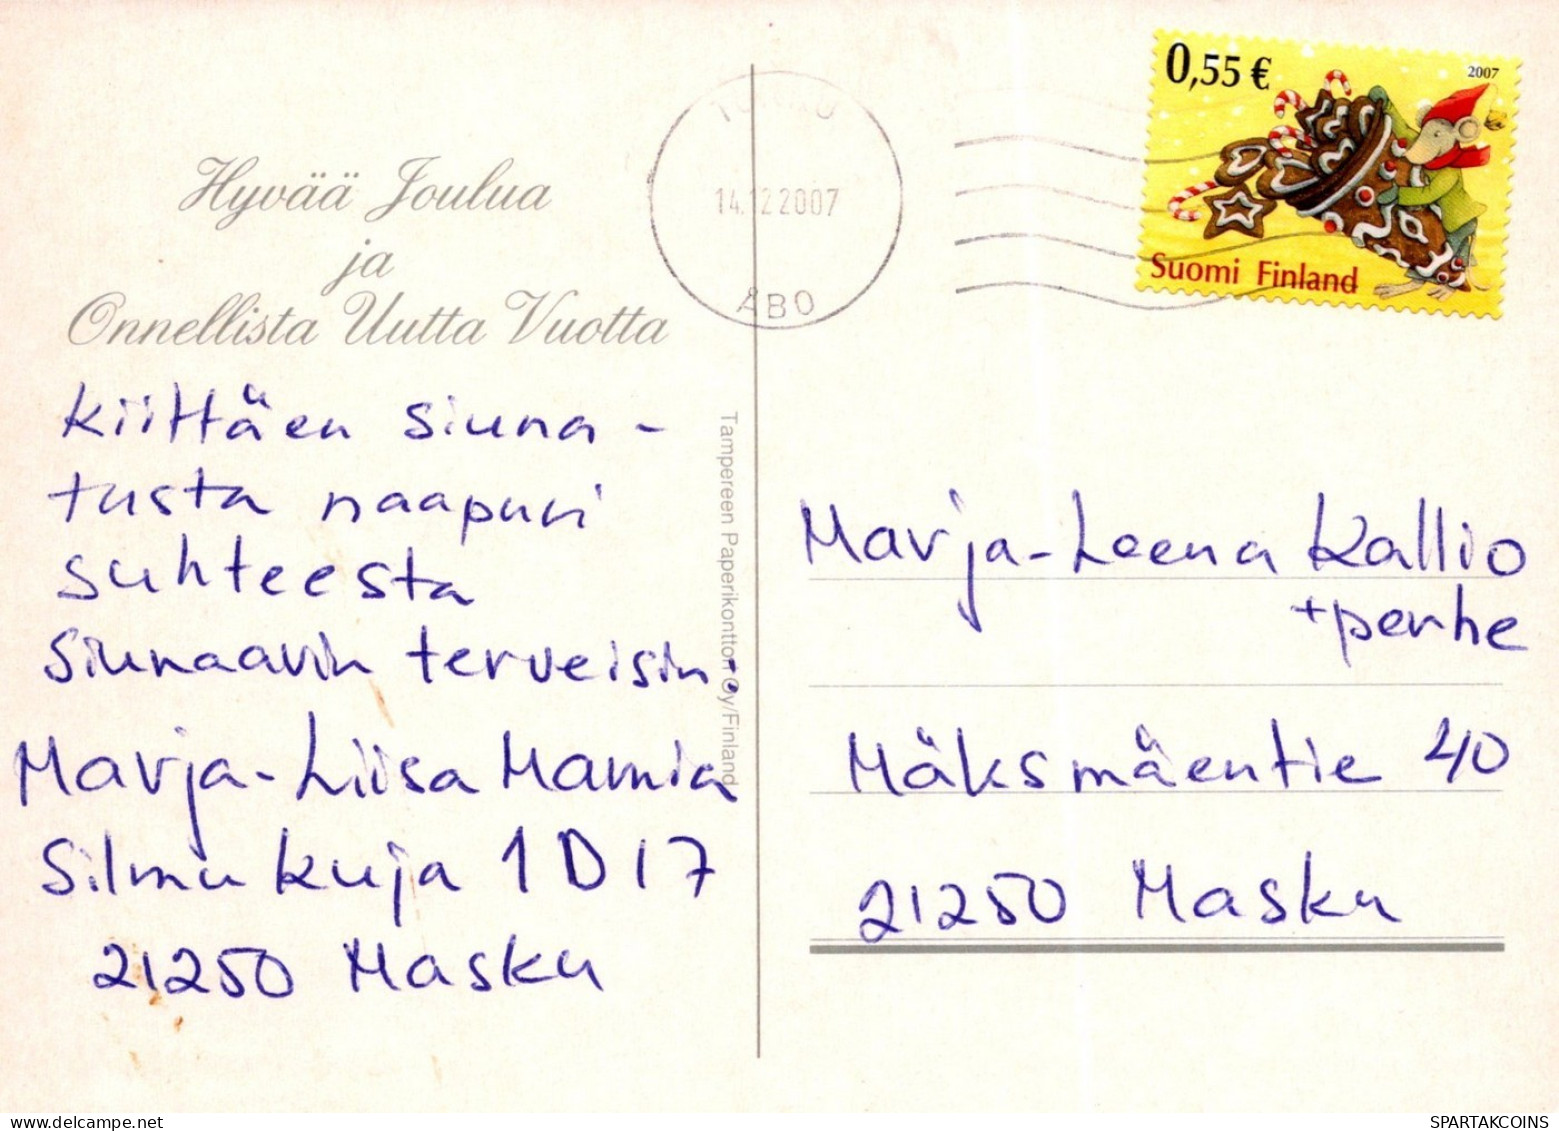 0,55 €
2007
Suomi Finland
TURKU
14.12.2007
ÅBO
Hyvää Joulua
ja
Onnellista Uutta Vuotta
Kiittäen siuna-
tusta naapuri
suhteesta
Siunaavin terveisin:
Marja-Liisa
Silmukuja 1 D 17
21250 Masku
Tampereen Paperikontton Oy/Finland
Marja-Leena Kallio
+perhe
Mäksmäentie 40
21250 Masku
SPARTAKCOINS